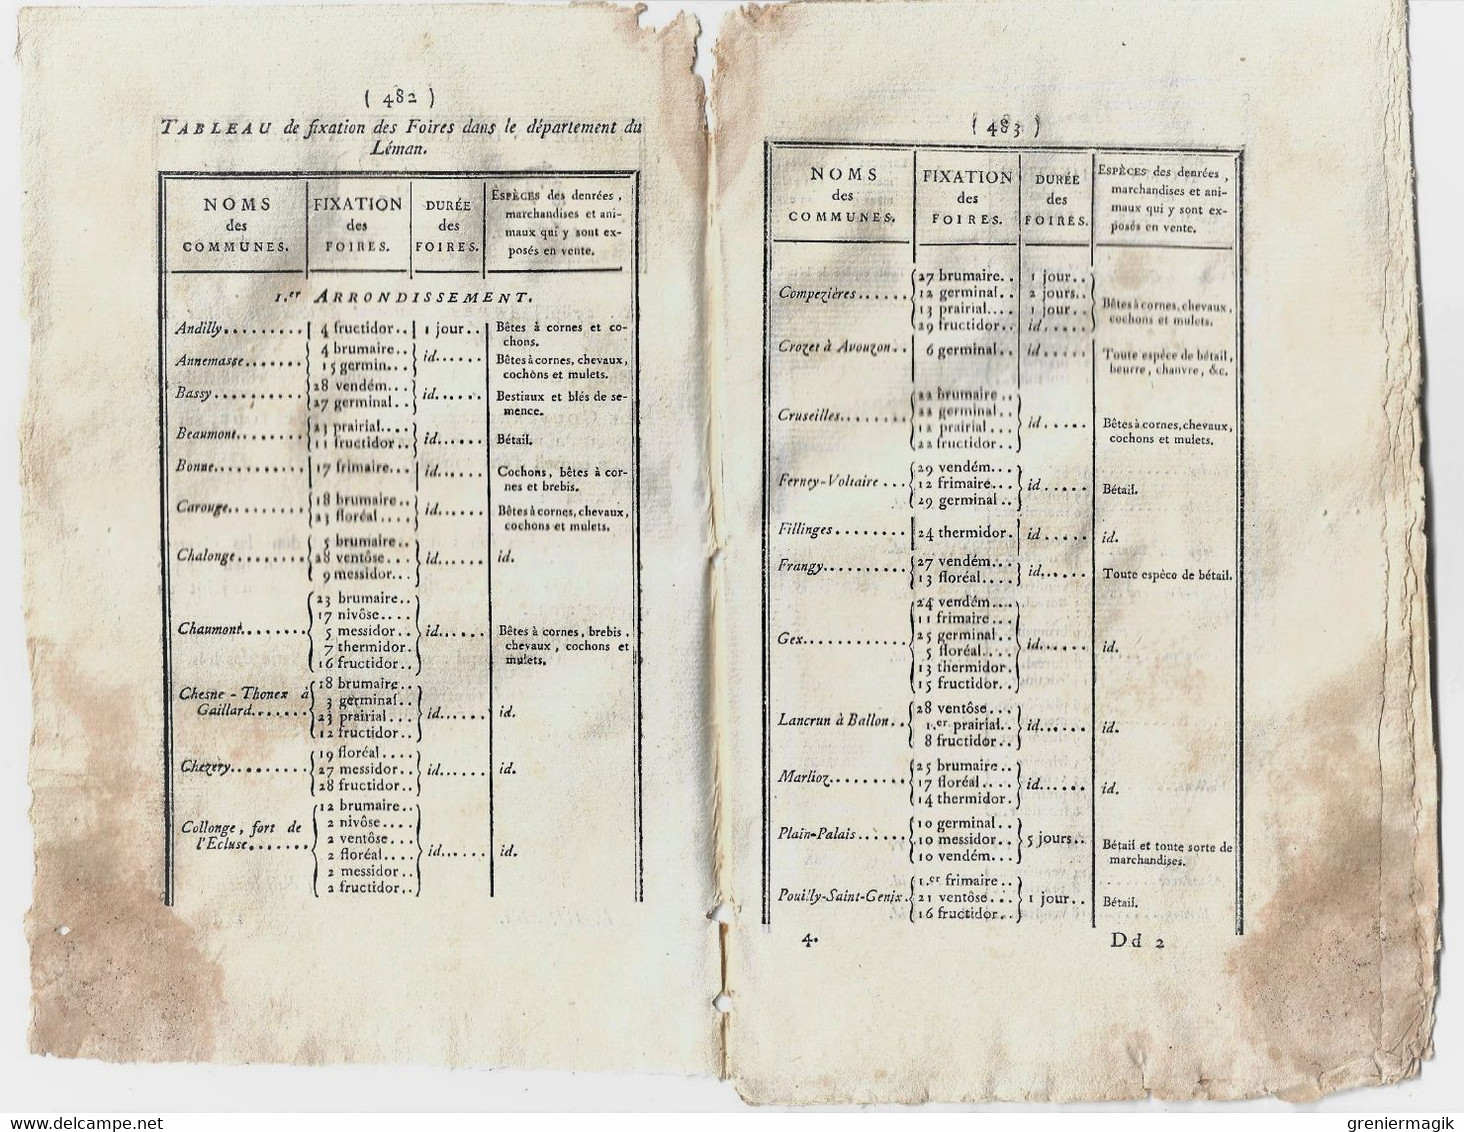 ( 482 )
TABLEAU de fixation des Foires dans le département du
Léman.
NOMS des COMMUNES. FIXATION des FOIRES. DURÉE des FOIRES. ESPÈCES des denrées, marchandises et ani- maux qui y sont ex- posés en vente.
1.er ARRONDISSEMENT.
Andilly......... 4 fructidor.. 1 jour.. Bêtes à cornes et co-
chons.
Annemasse....... 4 brumaire.. id...... Bêtes à cornes, chevaux,
15 germin... cochons et mulets.
Bassy.......... 28 vendém... id...... Bestiaux et blés de se-
27 germinal.. mence.
Beaumont........ 23 prairial.... id...... Bétail.
11 fructidor..
Bonne........... 17 frimaire... id...... Cochons, bêtes à cor-
nes et brebis.
Carouge......... 18 brumaire.. id...... Bêtes à cornes, chevaux,
23 floréal.... cochons et mulets.
Chalonge........ 5 brumaire.. id...... id.
28 ventôse...
9 messidor...
Chaumont........ 23 brumaire.. id...... Bêtes à cornes, brebis,
17 nivôse.... chevaux, cochons et
5 messidor.. mulets.
7 thermidor.
16 fructidor..
Chesne-Thonex à 18 brumaire.. id...... id.
Gaillard....... 3 germinal..
23 prairial...
12 fructidor..
Chezery......... 19 floréal.... id...... id.
27 messidor..
28 fructidor..
Collonge, fort de 12 brumaire.. id...... id.
l'Ecluse....... 2 nivôse....
2 ventôse...
2 floréal....
2 messidor..
2 fructidor..
( 483 )
NOMS des COMMUNES. FIXATION des FOIRES. DURÉE des FOIRES. ESPÈCES des denrées, marchandises et ani- maux qui y sont ex- posés en vente.
Compezières...... 27 brumaire.. 1 jour.. Bêtes à cornes, chevaux,
12 germinal.. 2 jours.. cochons et mulets.
13 prairial.... 1 jour..
29 fructidor.. id.....
Crozet à Avouzon.. 6 germinal.. id..... Toute espèce de bétail,
beurre, chanvre, &c.
Cruseilles....... 22 brumaire.. id..... Bêtes à cornes, chevaux,
22 germinal.. cochons et mulets.
12 prairial...
22 fructidor..
Ferney-Voltaire... 29 vendém... id..... Bétail.
12 frimaire...
29 germinal..
Fillinges........ 24 thermidor. id...... id.
Frangy.......... 27 vendém... id...... Toute espèce de bétail.
13 floréal....
Gex............ 24 vendém... id...... id.
11 frimaire...
25 germinal..
5 floréal....
13 thermidor.
15 fructidor..
Lancrun à Ballon.. 28 ventôse... id...... id.
1.er prairial..
8 fructidor..
Marlioz......... 25 brumaire.. id...... id.
17 floréal....
14 thermidor.
Plain-Palais...... 10 germinal.. 5 jours.. Bétail et toute sorte de
10 messidor.. marchandises.
10 vendém...
Pouilly-Saint-Genix. 1.er frimaire.. 1 jour.. Bétail.
21 ventôse...
16 fructidor..
4. Dd 2
greniermagik
delcampe.net